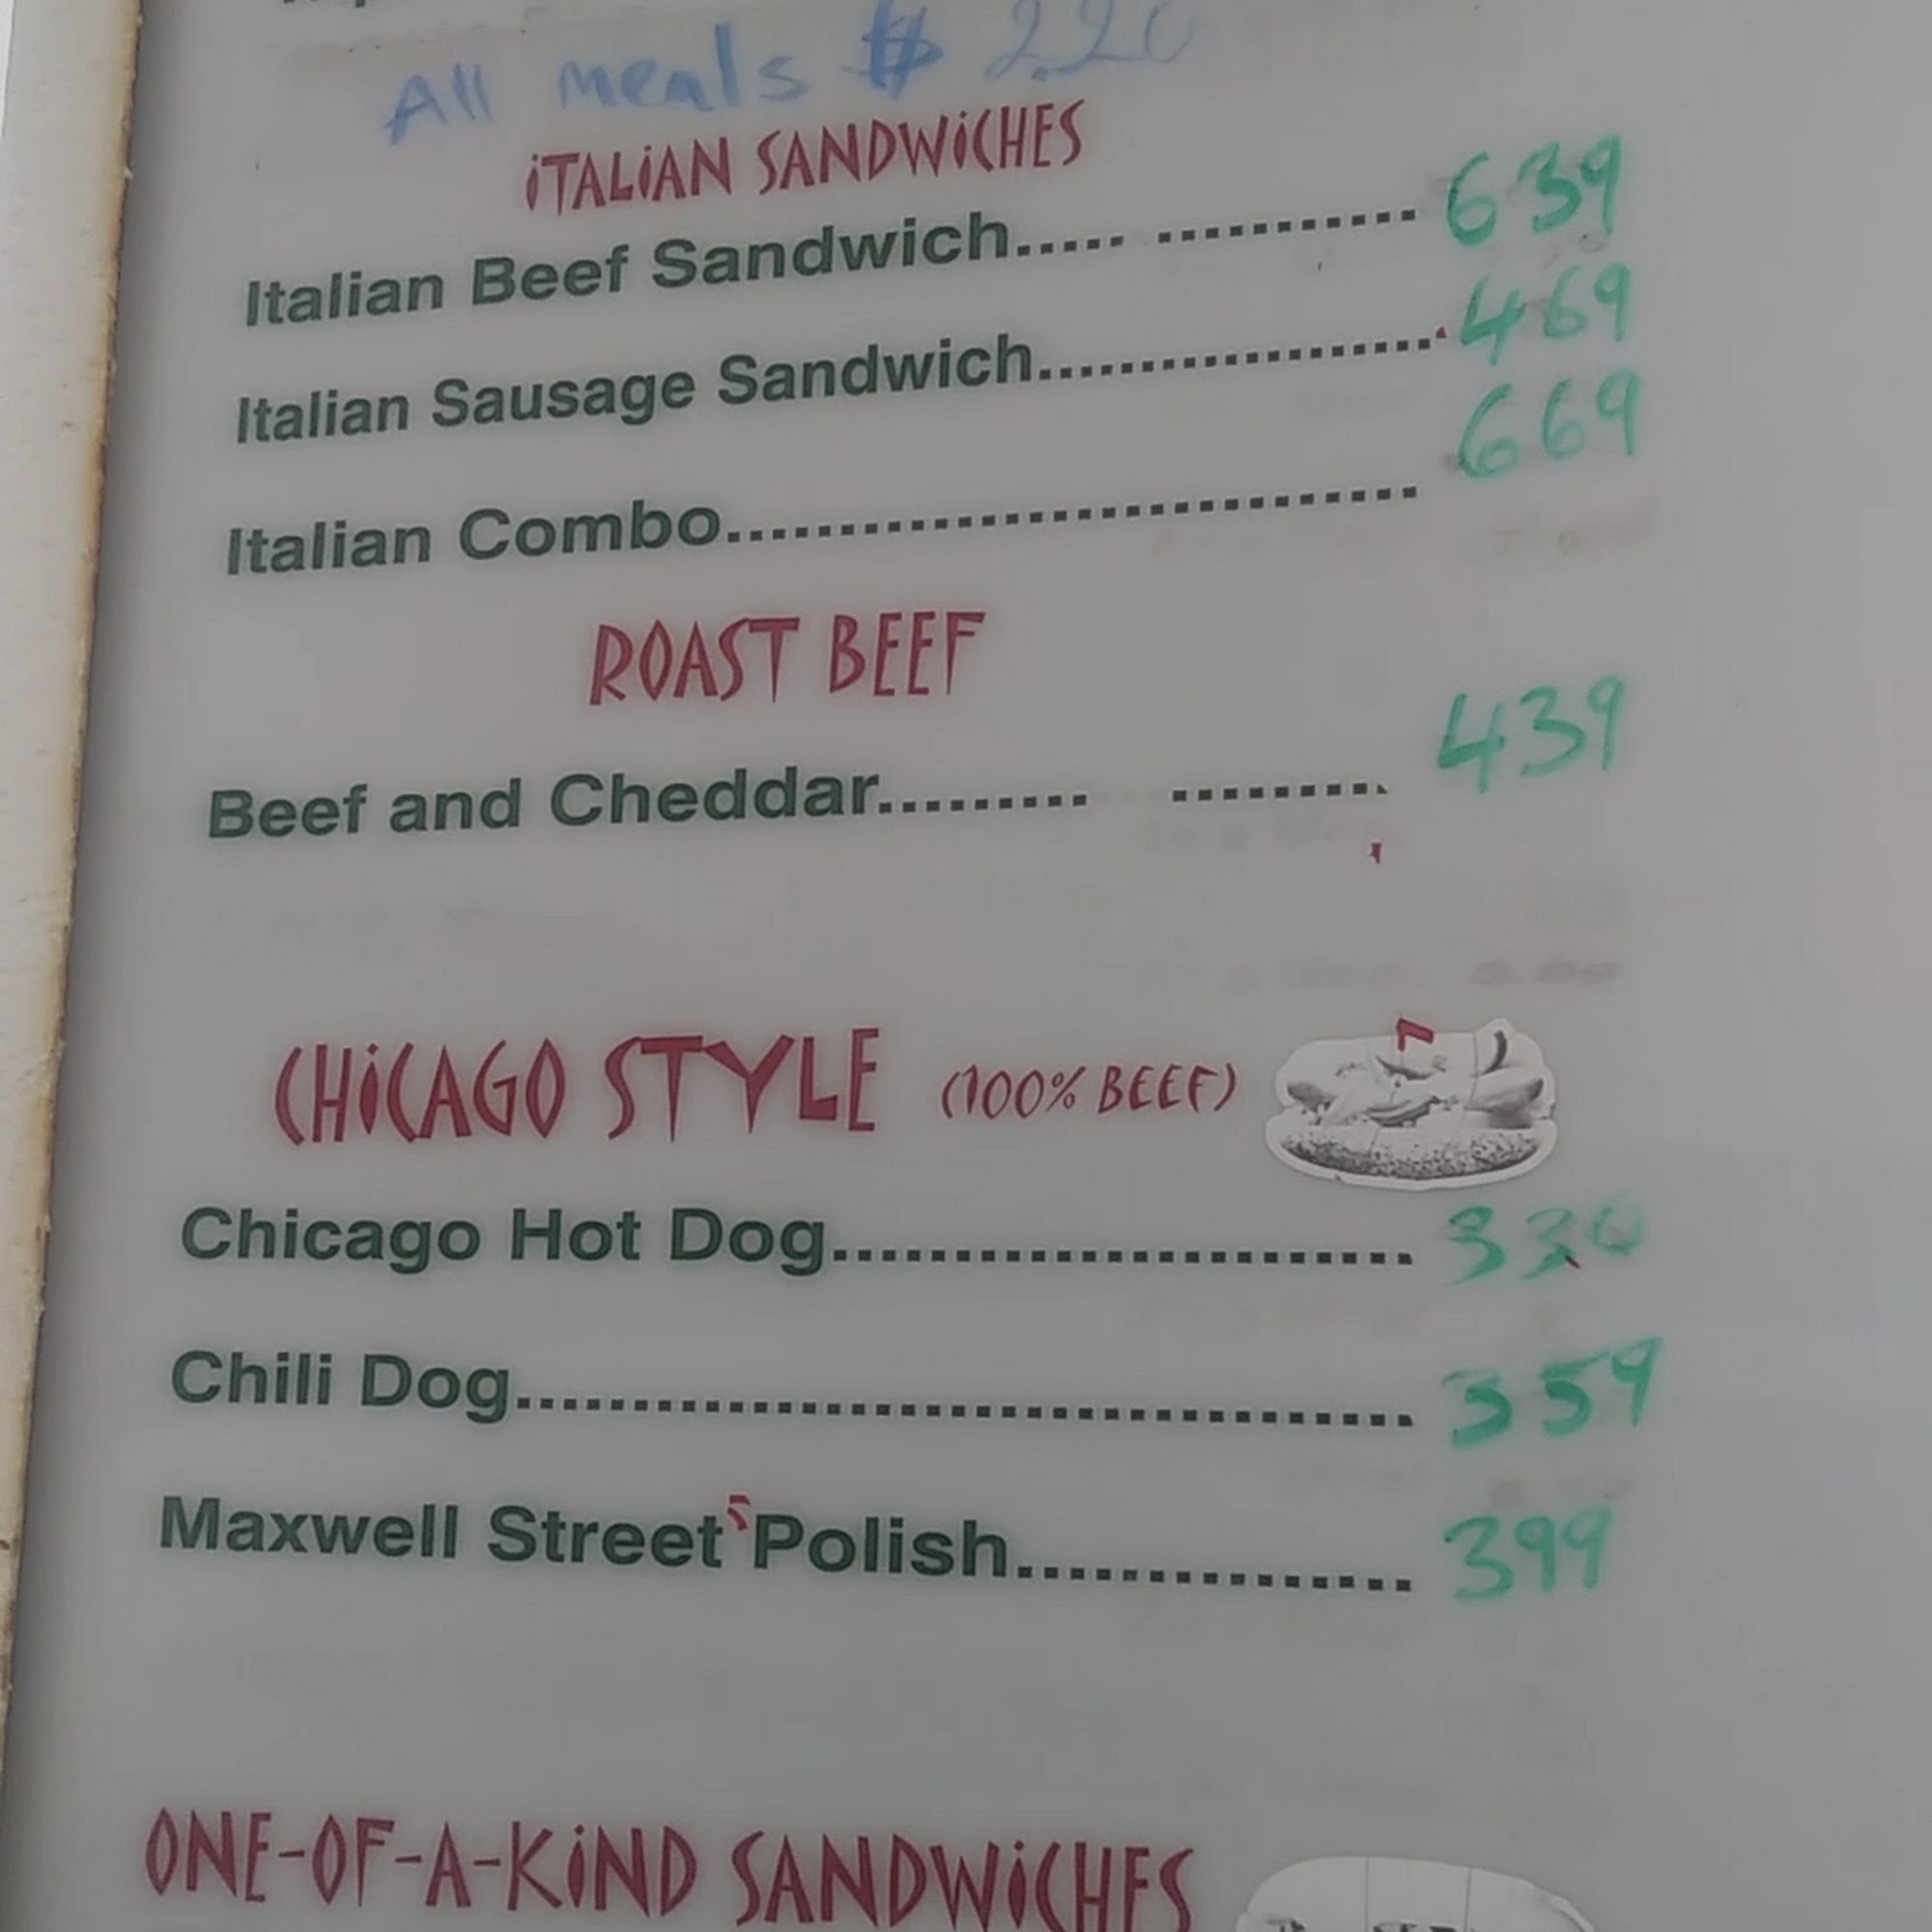 All meals $ 2.20
ITALIAN SANDWICHES
Italian Beef Sandwich..... ........... 639
Italian Sausage Sandwich.................... 469
Italian Combo.............................. 669
ROAST BEEF
Beef and Cheddar......... ......... 439
CHICAGO STYLE (100% BEEF)
Chicago Hot Dog........................ 330
Chili Dog..................................... 359
Maxwell Street Polish................ 399
ONE-OF-A-KIND SANDWICHES